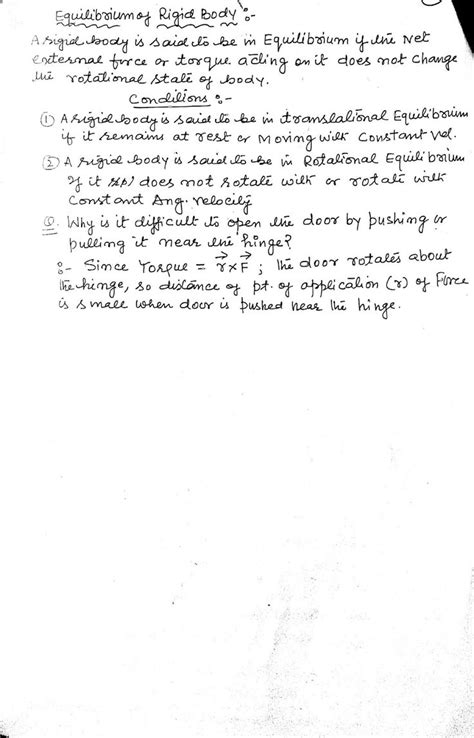 Equilibrium of Rigid Body :-
A rigid body is said to be in Equilibrium if the Net
external force or torque acting on it does not change
the rotational state of body.
Conditions :-
① A rigid body is said to be in translational Equilibrium
if it remains at rest or Moving with Constant Vel.
② A rigid body is said to be in Rotational Equilibrium
If it does not rotate with or rotate with
Constant Ang. velocity
Q. Why is it difficult to open the door by pushing or
pulling it near the hinge?
:- Since Torque = r⃗ × F⃗ ; the door rotates about
the hinge, so distance of pt. of application (r) of Force
is small when door is pushed near the hinge.